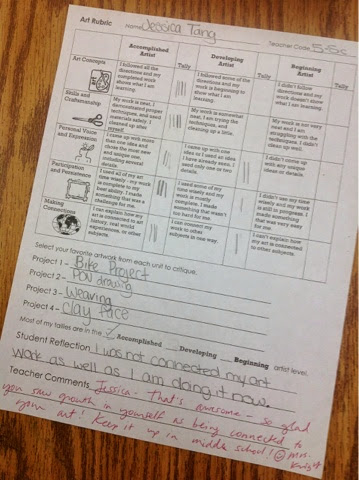 Art Rubric Name Jessica Tang Teacher Code 5-S5c
Accomplished Artist Tally Developing Artist Tally Beginning Artist Tally
Art Concepts
I followed all the directions and my completed work shows what I am learning.
I followed some of the directions and my work is beginning to show what I am learning.
I didn't follow directions and my work doesn't show what I am learning.
Skills and Craftsmanship
My work is neat, I demonstrated proper techniques, and used materials safely. I cleaned up after myself.
My work is somewhat neat, I am trying the techniques, and cleaning up a little.
My work is not very neat and I am struggling with the techniques. I didn't clean up well.
Personal Voice and Expression
I came up with more than one idea and chose the most new and unique one, including several details.
I came up with one idea or I used an idea I have already seen. I used only one or two details.
I didn't come up with any unique ideas or details.
Participation and Persistence
I used all of my art time wisely - my work is complete to my best ability. I made something that was a challenge for me.
I used some of my time wisely and my work is mostly complete. I made something that wasn't too hard for me.
I didn't use my time wisely and my work is still in progress. I made something that was very easy for me.
Making Connections
I can explain how my art is connected to art history, real world experiences, or other subjects.
I can connect my work to other subjects in one way.
I can't explain how my art is connected to other subjects.
Select your favorite artwork from each unit to critique.
Project 1 - Bike Project
Project 2 - POV drawing
Project 3 - Weaving
Project 4 - Clay Face
Most of my tallies are in the Accomplished Developing Beginning artist level.
Student Reflection I was not connected my art
work as well as I am doing it now.
Teacher Comments Jessica - That's awesome - so glad
you saw growth in yourself as being connected to
your art! Keep it up in middle school! Mrs.
Knight